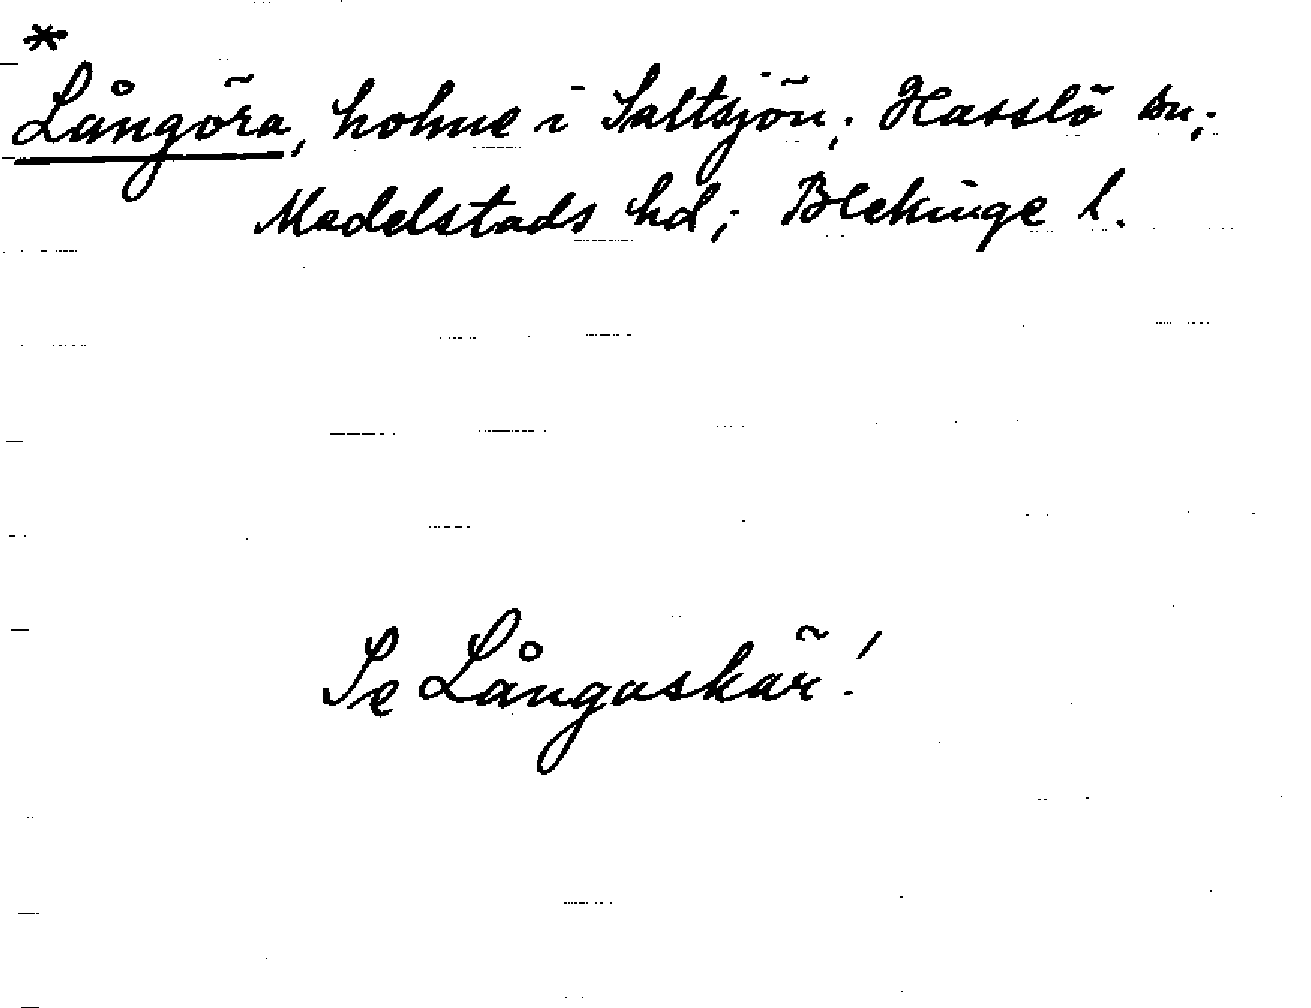 *
Långöra, holme i Saltsjön; Hasslö sn;
Medelstads hd; Blekinge l.
Se Långaskär!